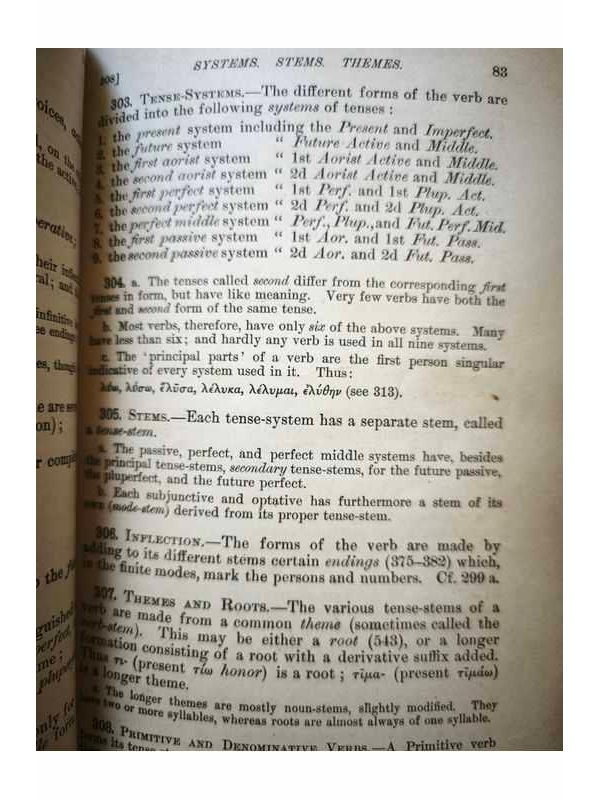 308]
SYSTEMS. STEMS. THEMES.
83
303. TENSE-SYSTEMS.—The different forms of the verb are
divided into the following systems of tenses :
1. the present system including the Present and Imperfect.
2. the future system “ Future Active and Middle.
3. the first aorist system “ 1st Aorist Active and Middle.
4. the second aorist system “ 2d Aorist Active and Middle.
5. the first perfect system “ 1st Perf. and 1st Plup. Act.
6. the second perfect system “ 2d Perf. and 2d Plup. Act.
7. the perfect middle system “ Perf., Plup., and Fut. Perf. Mid.
8. the first passive system “ 1st Aor. and 1st Fut. Pass.
9. the second passive system “ 2d Aor. and 2d Fut. Pass.
304. a. The tenses called second differ from the corresponding first
tenses in form, but have like meaning. Very few verbs have both the
first and second form of the same tense.
b. Most verbs, therefore, have only six of the above systems. Many
have less than six; and hardly any verb is used in all nine systems.
c. The ‘principal parts’ of a verb are the first person singular
indicative of every system used in it. Thus:
λύω, λύσω, ἔλῡσα, λέλυκα, λέλυμαι, ἐλύθην (see 313).
305. STEMS.—Each tense-system has a separate stem, called
a tense-stem.
a. The passive, perfect, and perfect middle systems have, besides
the principal tense-stems, secondary tense-stems, for the future passive,
the pluperfect, and the future perfect.
b. Each subjunctive and optative has furthermore a stem of its
own (mode-stem) derived from its proper tense-stem.
306. INFLECTION.—The forms of the verb are made by
adding to its different stems certain endings (375–382) which,
in the finite modes, mark the persons and numbers. Cf. 299 a.
307. THEMES AND ROOTS.—The various tense-stems of a
verb are made from a common theme (sometimes called the
verb-stem). This may be either a root (543), or a longer
formation consisting of a root with a derivative suffix added.
Thus τι- (present τίω honor) is a root ; τῑμα- (present τῑμάω)
is a longer theme.
a. The longer themes are mostly noun-stems, slightly modified. They
have two or more syllables, whereas roots are almost always of one syllable.
308. PRIMITIVE AND DENOMINATIVE VERBS.—A Primitive verb
forms its tense
oices,
on the
the active
perative;
their
ral; and
infinitive
endings
though
are
on);
r
o the
guished
perfect,
me;
only for